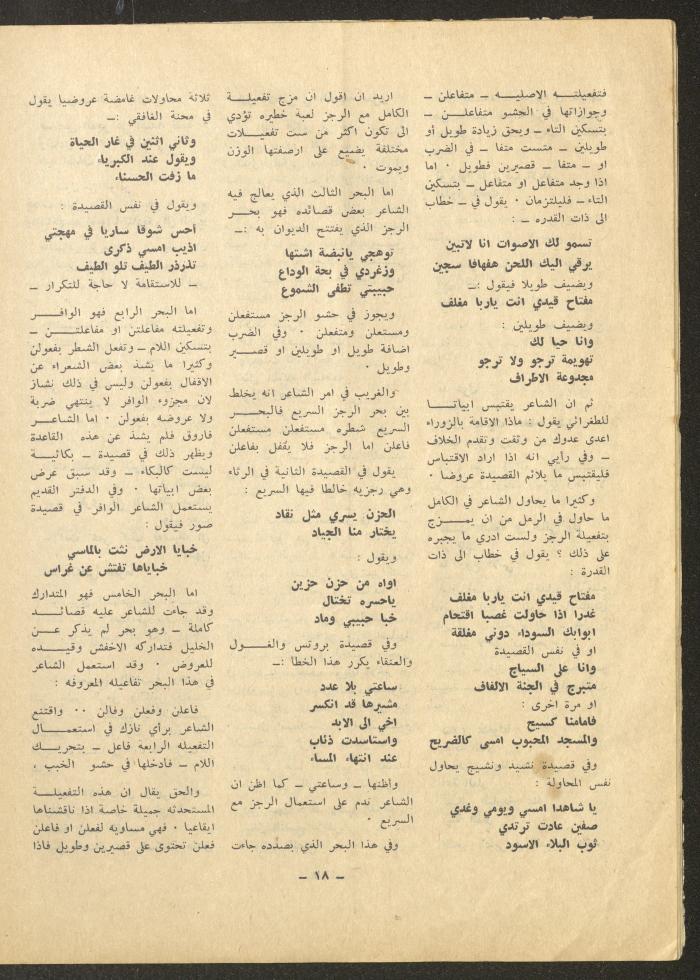 فتفعيلتــه الاصليــه ــ متفاعلن ــ
وجوازاتها في الحشو متفاعلــن ــ
بتسكين التاء ــ ويحق زيادة طويل أو
طويلين ــ متست متفا ــ في الضرب
او ــ متفا ــ قصيرين فطويل ٠ اما
اذا وجد متفاعل او متفاعل ــ بتسكين
التاء ــ فليلتزمان ٠ يقول في ــ خطاب
الى ذات القدره ــ :
تسمو لك الاصوات انا لاتبين
يرقي اليك اللحن هفهافا سجين
ويضيف طويلا فيقول :ــ
مفتاح قيدي انت ياربا مغلف
ويضيف طويلين :
وانا حبا لك
تهويمة ترجو ولا ترجو
مجدوعة الاطراف
ثم ان الشاعر يقتبس ابياتــا
للطغرائي يقول : ماذا الاقامة بالزوراء
اعدى عدوك من وثقت وتقدم الخلاف
ــ وفي رايي انه اذا اراد الاقتباس
فليقتبس ما يلائم القصيدة عروضا ٠
وكثيرا ما يحاول الشاعر في الكامل
ما حاول في الرمل من ان يمــزج
بتفعيلة الرجز ولست ادري ما يجبره
على ذلك ؟ يقول في خطاب الى ذات
القدرة :
مفتاح قيدي انت ياربا مغلف
غدرا اذا حاولت غصبا اقتحام
ابوابك السوداء دوني مغلقة
او في نفس القصيدة
وانا على السياج
متبرج في الجنة الالفاف
او مرة اخرى :
فامامنا كسيح
والمسجد المحبوب امسى كالضريح
وفي قصيدة نشيد ونشيج يحاول
نفس المحاولة :
يا شاهدا امسي ويومي وغدي
صفين عادت ترتدي
ثوب البلاء الاسود
اريد ان اقول ان مزج تفعيلــة
الكامل مع الرجز لعبة خطيره تؤدي
الى تكون اكثر من ست تفعيــلات
مختلفة يضيع على ارصفتها الوزن
ويموت ٠
اما البحر الثالث الذي يعالج فيه
الشاعر بعض قصائده فهو بحــر
الرجز الذي يفتتح الديوان به :ــ
توهجي يانبضة اشتها
وزغردي في بحة الوداع
حبيبتي تطفى الشموع
ويجوز في حشو الرجز مستفعلن
ومستعلن ومتفعلن ٠ وفي الضرب
اضافة طويل او طويلين او قصــير
وطويل ٠
والغريب في امر الشاعر انه يخلط
بين بحر الرجز السريع فالبحــر
السريع شطره مستفعلن مستفعلن
فاعلن اما الرجز فلا يقفل بفاعلن
يقول في القصيدة الثانية في الرثاء
وهي رجزيه خالطا فيها السريع :
الحزن يسري مثل نقاد
يختار منا الجياد
ويقول :
اواه من حزن حزين
ياحسره تختال
خبا حبيبي وماد
وفي قصيدة بروتس والغــول
والعنقاء يكرر هذا الخطا :ــ
ساعتي بلا عدد
مشيرها قد انكسر
اخي الى الابد
واستاسدت ذئاب
عند انتهاء المساء
وأظنها ــ وساعتي ــ كما اظن ان
الشاعر ندم على استعمال الرجز مع
السريع ٠
وفي هذا البحر الذي بصدده جاءت
ثلاثة محاولات غامضة عروضيا يقول
في محنة الغافقي :ــ
وثاني اثنين في غار الحياة
ويقول عند الكبرياء
ما زفت الحسناء
ويقول في نفس القصيدة :
أحس شوقا ساريا في مهجتي
اذيب امسي ذكرى
تذرذر الطيف تلو الطيف
ــ للاستقامة لا حاجة للتكرار ــ
اما البحر الرابع فهو الوافــر
وتفعيلته مفاعلتن او مفاعلتــن ــ
بتسكين اللام ــ وتفعل الشطر بفعولن
وكثيرا ما يشذ بعض الشعراء عن
الاقفال بفعولن وليس في ذلك نشاز
لان مجزوء الوافر لا ينتهي ضربة
ولا عروضه بفعولن ٠ اما الشاعــر
فاروق فلم يشذ عن هذه القاعدة
ويظهر ذلك في قصيدة ــ بكائيــة
ليست كالبكاء ــ وقد سبق عرض
بعض ابياتها ٠ وفي الدفتر القديم
يستعمل الشاعر الوافر في قصيدة
صور فيقول :
خبايا الارض نثت بالماسي
خباياها تفتش عن غراس
اما البحر الخامس فهو المتدارك
وقد جاءت للشاعر عليه قصائــد
كاملة ــ وهو بحر لم يذكر عــن
الخليل فتداركه الاخفش وقيــده
للعروض ٠ وقد استعمل الشاعر
في هذا البحر تفاعيله المعروفه :
فاعلن وفعلن وفالن ٠٠ واقتنع
الشاعر برأي نازك في استعمــال
التفعيله الرابعة فاعل ــ بتحريــك
اللام ــ فادخلها في حشو الخبب ،
والحق يقال ان هذه التفعيلــة
المستحدثه جميلة خاصة اذا ناقشناها
ايقاعيا ٠ فهي مساويه لفعلن او فاعلن
فعلن تحتوى على قصيرين وطويل فاذا
ــ ١٨ ــ